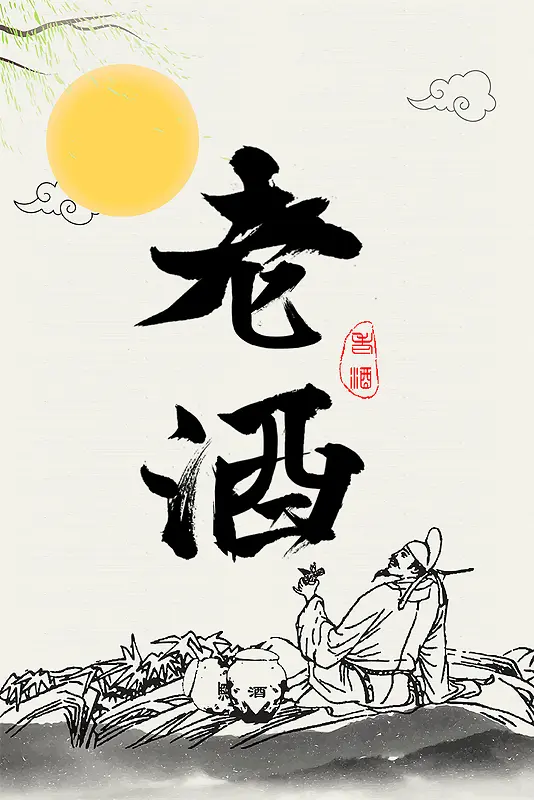 老
酒
酒
酒